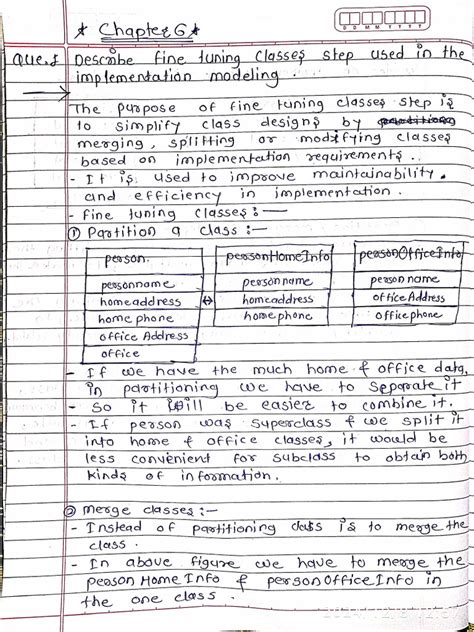 ★ Chapter 6 ★
D D M M Y Y Y Y
Que.1 Describe fine tuning classes step used in the
implementation modeling.
→ The purpose of fine tuning classes step is
to simplify class designs by
merging, splitting or modifying classes
based on implementation requirements.
- It is used to improve maintainability.
and efficiency in implementation.
- fine tuning classes :—
① Partition a class :—
person. personHomeInfo personOfficeInfo
personname person name person name
homeaddress ↔ homeaddress office Address
home phone home phone office phone
office Address
office
- If we have the much home & office data,
in partitioning we have to separate it
- So it will be easier to combine it.
- If person was superclass & we split it
into home & office classes, it would be
less convenient for subclass to obtain both
kinds of information.
② merge classes :-
- Instead of partitioning class is to merge the
class.
- In above figure we have to merge the
person Home Info & person Office Info in
the one class.